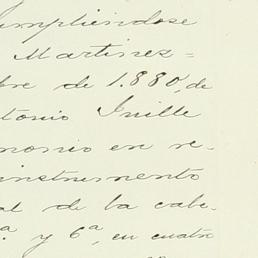 umpliéndose
Martinez =
bre de 1.880, de
tonio Inille
monio en re-
instrumento
al de la cabe-
ª y 6ª, en cuatro